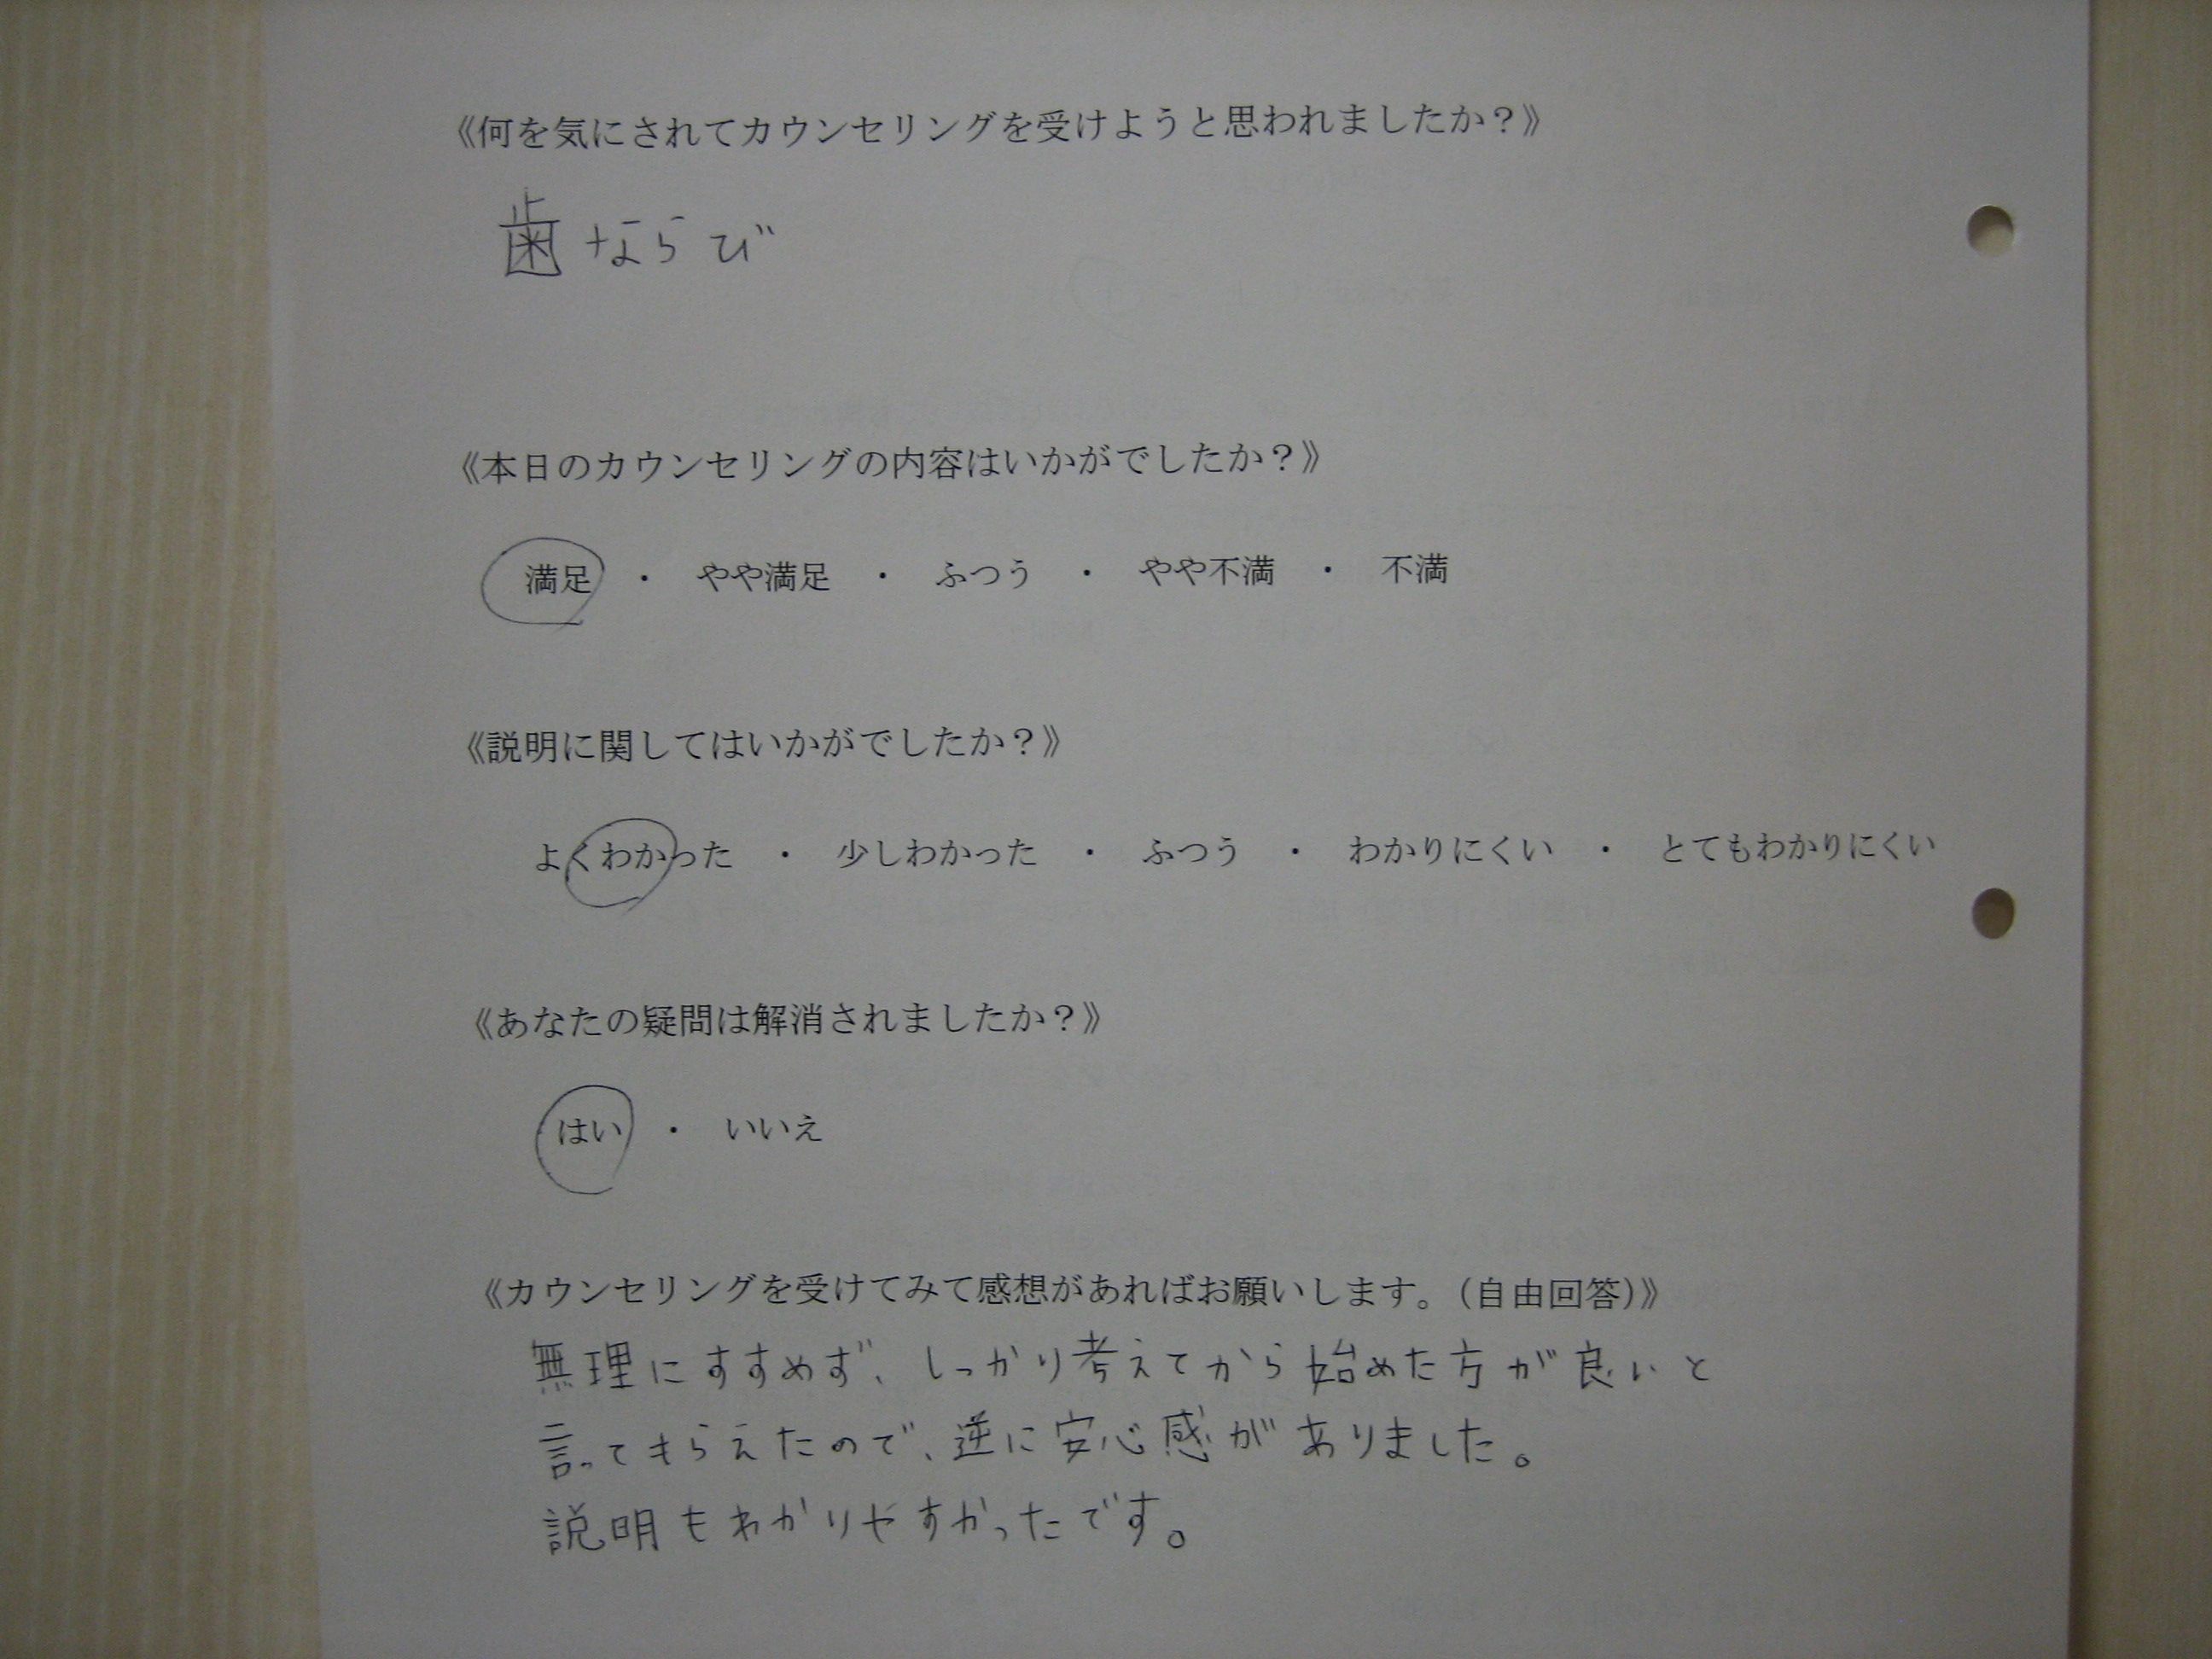 《何を気にされてカウンセリングを受けようと思われましたか？》
歯ならび
《本日のカウンセリングの内容はいかがでしたか？》
満足　・　やや満足　・　ふつう　・　やや不満　・　不満
《説明に関してはいかがでしたか？》
よくわかった　・　少しわかった　・　ふつう　・　わかりにくい　・　とてもわかりにくい
《あなたの疑問は解消されましたか？》
はい　・　いいえ
《カウンセリングを受けてみて感想があればお願いします。（自由回答）》
無理にすすめず、しっかり考えてから始めた方が良いと
言ってもらえたので、逆に安心感がありました。
説明もわかりやすかったです。